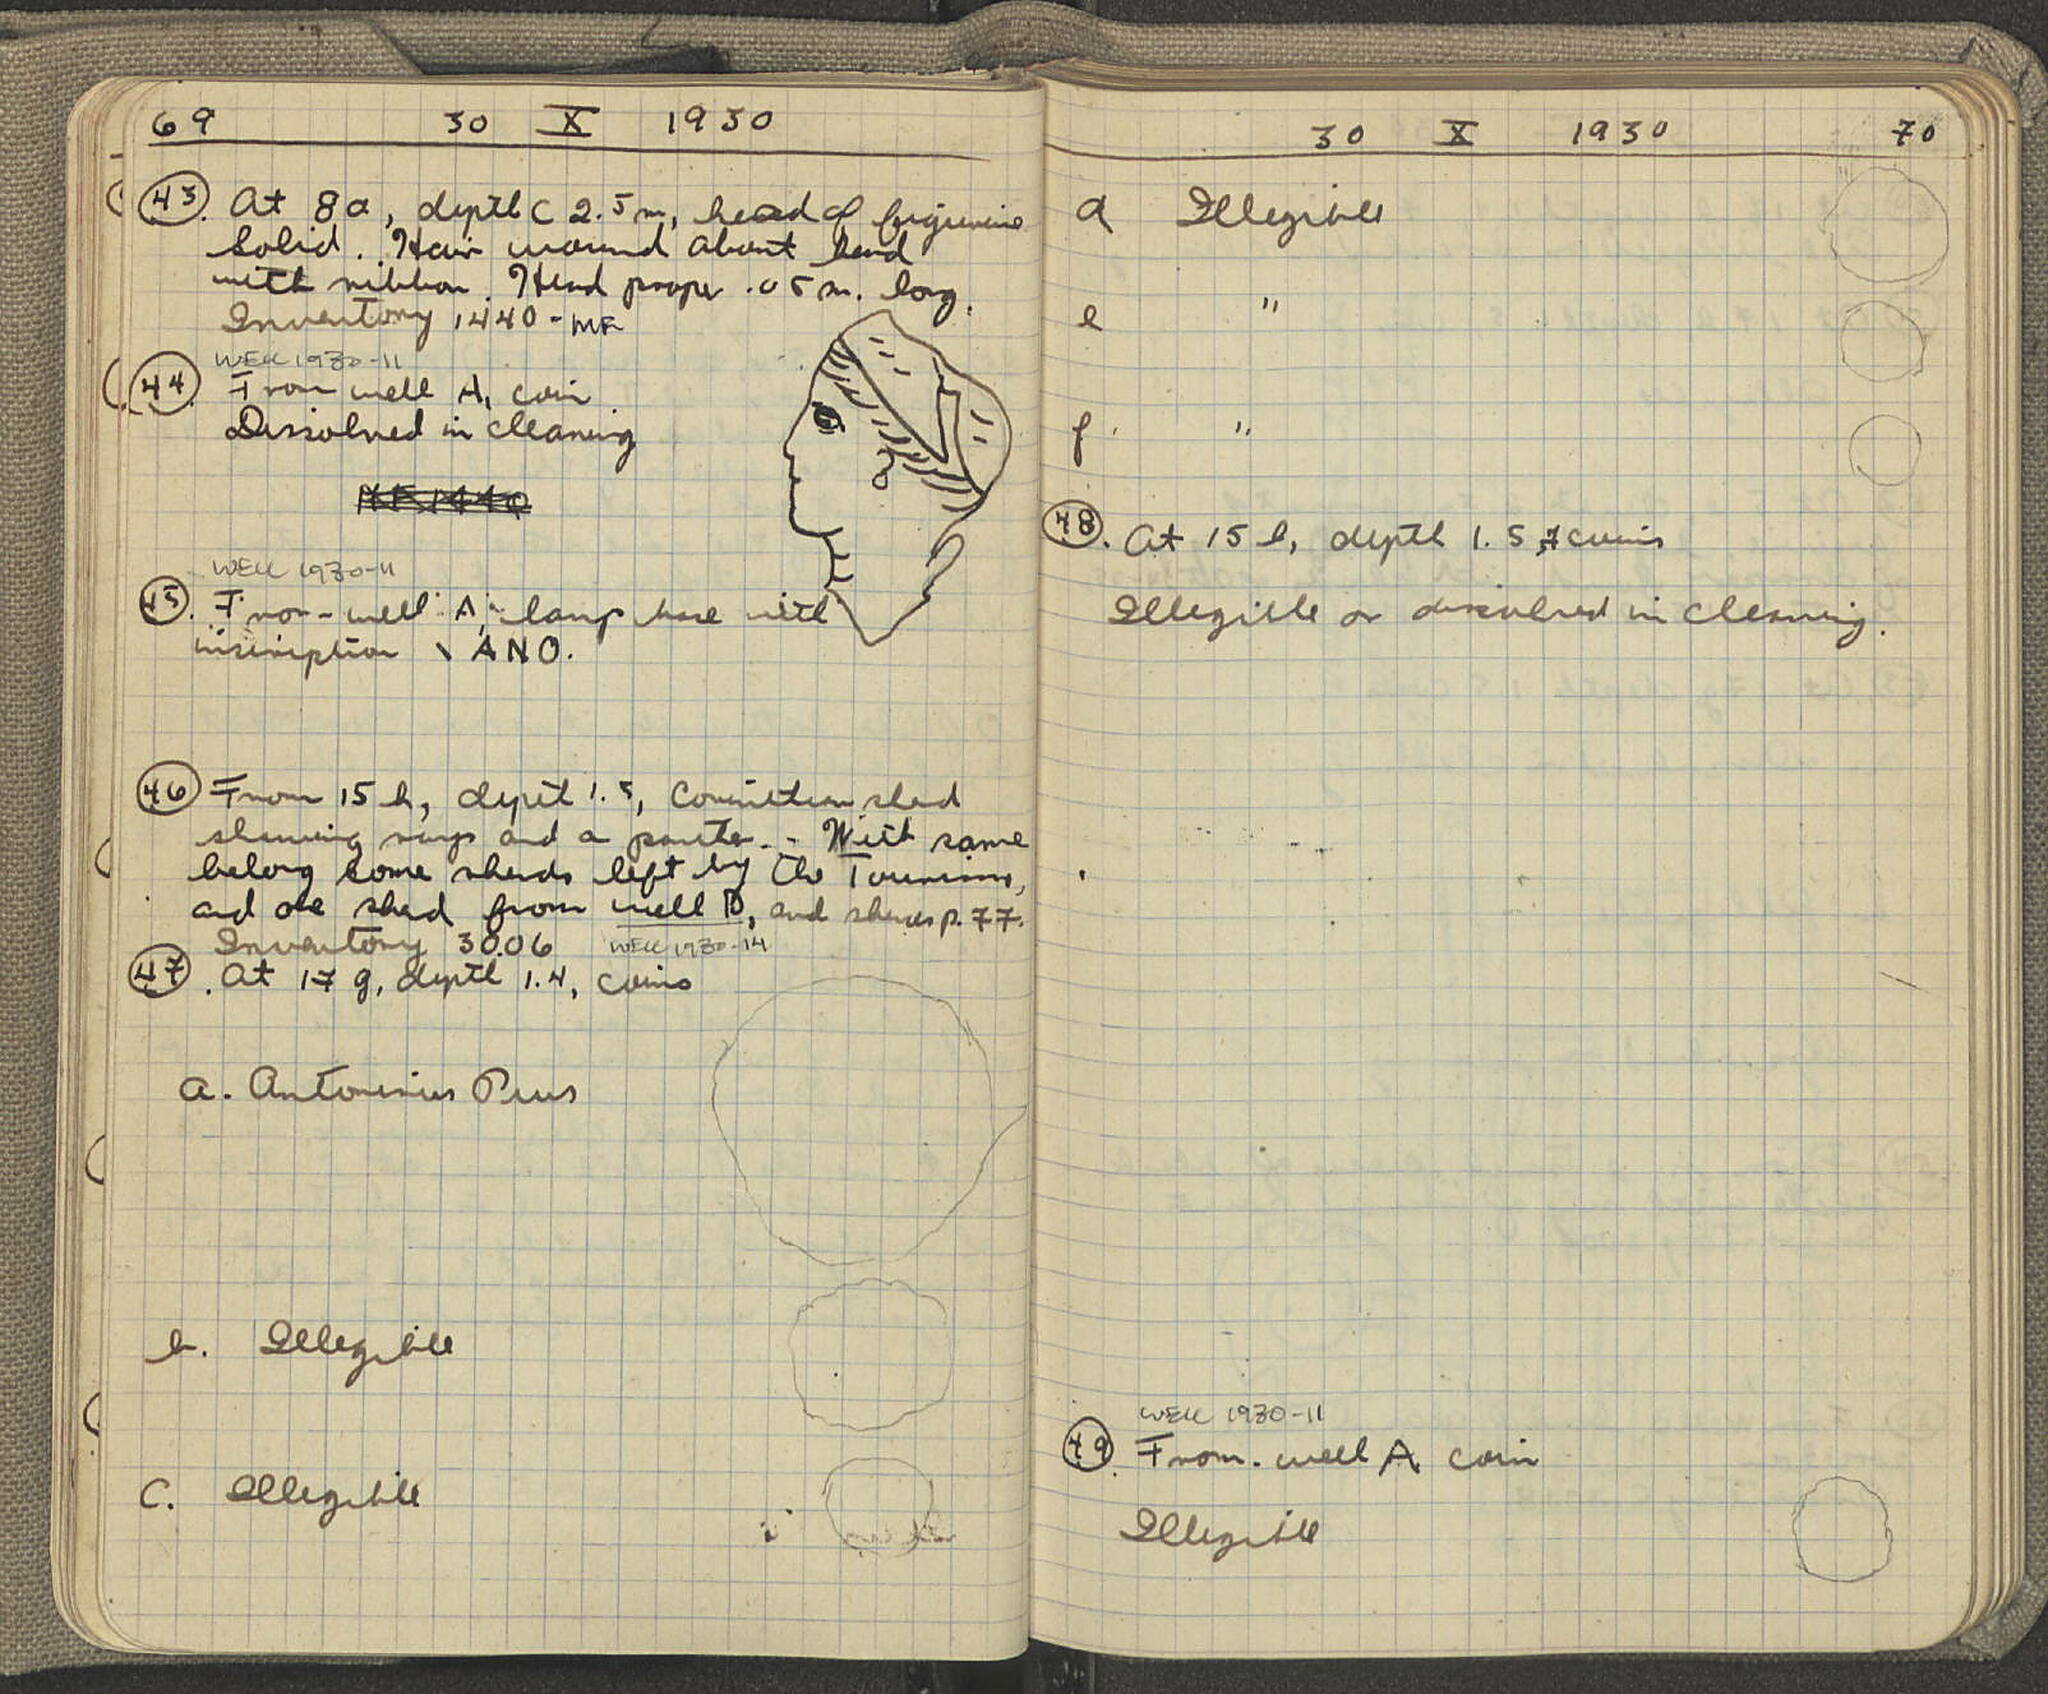 69 30 X 1930
43. At 8a, depth c 2.5 m, head of figurine
solid. Hair wound about head
with ribbon. Head proper .05 m. long.
Inventory 1440 - MF
WELL 1930-11
44. From well A, coin
Dissolved in cleaning
MF 1440
WELL 1930-11
45. From well A, lamp base with
inscription \ ANO.
46 From 15 h, depth 1.5, Corinthian sherd
showing rays and a panther. - With same
belong some sherds left by the
and one shed from well D, and sherds p. 77.
Inventory 3006 WELL 1930-14
47. At 17 g, depth 1.4, coins
a. Antoninus Pius
b. Illegible
c. Illegible
30 X 1930 70
d Illegible
e "
f "
48. At 15 l, depth 1.5, 7 coins
Illegible or dissolved in cleaning.
WELL 1930-11
49. From well A coin
Illegible